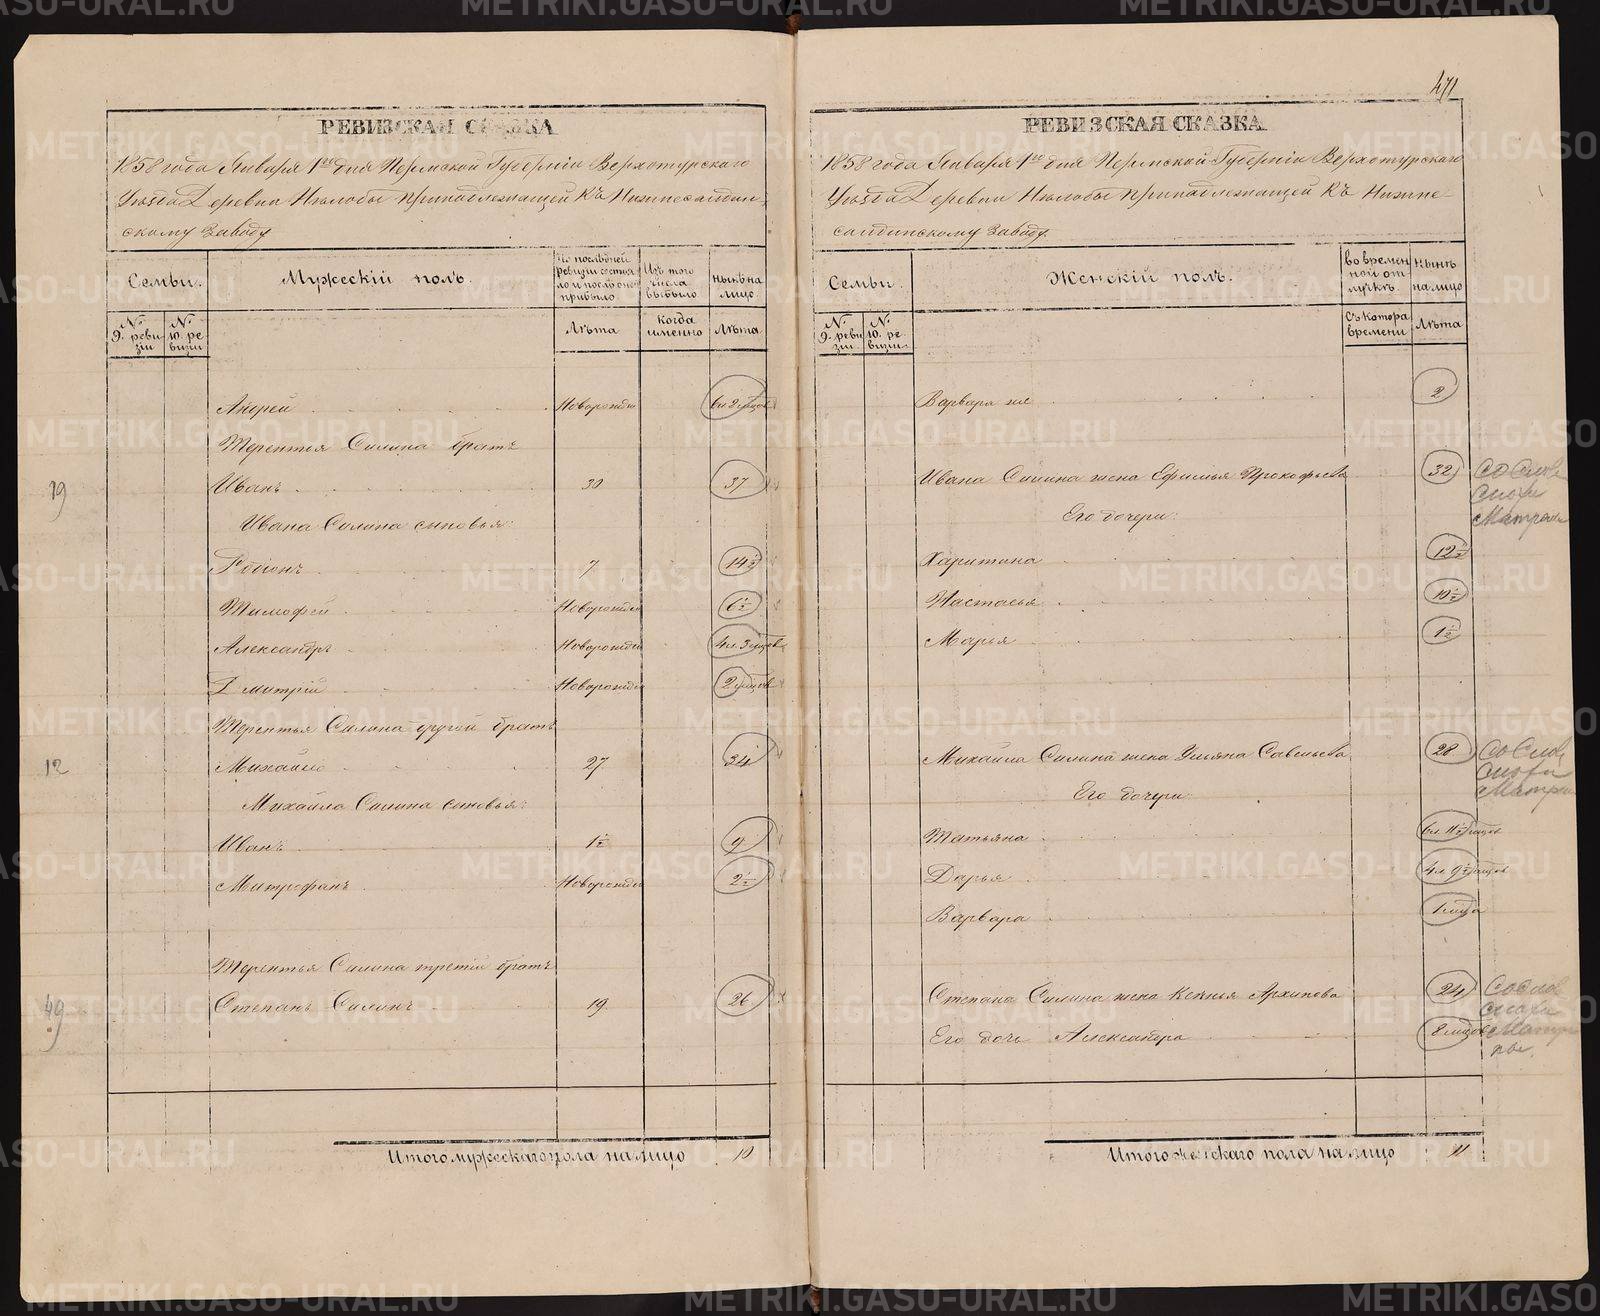 471
РЕВИЗСКАЯ СКАЗКА
1858 года Января 1го дня Пермской Губерніи Верхотурскаго
Уѣзда Деревни Нѣлобы принадлежащей Къ Нижнесалдин-
скому Заводу
Семьи.
Мужескій полъ.
По послѣдней ревизіи состояло и послѣ оной прибыло
Изъ того числа выбыло
Нынѣ на лицо
№ 9. ревизіи
№ 10. ревизіи
Лѣта
Когда именно
Лѣта
Андрей Новорожде
Терентья Силина братъ
19 Иванъ 30 37
Ивана Силина сыновья:
Родіонъ 7 14½
Тимофей Новорожде 6½
Александръ Новорожде 4л 3 мцов
Дмитрій Новорожде 2 мцов
Терентья Силина другой братъ
12 Михайло 27 34
Михайла Силина сыновья:
Иванъ 1½ 9
Митрофанъ Новорожде 2½
Терентья Силина третій братъ
49 Степанъ Силинъ 19 26
Итого мужескаго пола на лицо 10
РЕВИЗСКАЯ СКАЗКА
1858 года Января 1го дня Пермской Губерніи Верхотурскаго
Уѣзда Деревни Нѣлобы принадлежащей Къ Нижне
салдинскому Заводу.
Семьи
Женскій полъ.
Во временной отлучкѣ.
Нынѣ на лицо
№ 9. ревизіи
№ 10. ревизіи.
Съ котора времени
Лѣта
Варвара 2
Ивана Силина жена Ефимья Прокофьева 32 со слов
снохи
Матрены
Его дочери:
Харитина 12½
Настасья 10½
Марья 1½
Михайла Силина жена Ульяна Савельева 28 со слов
снохи
Матрены
Его дочери
Татьяна 6л 11½ мцов
Дарья 4л 9½ мцов
Варвара 1 мца
Степана Силина жена Ксенья Архипова 24 со слов
снохи
Его дочь Александра 8 мцов Матре
ны.
Итого женскаго пола на лицо 11
METRIKI.GASO-URAL.RU